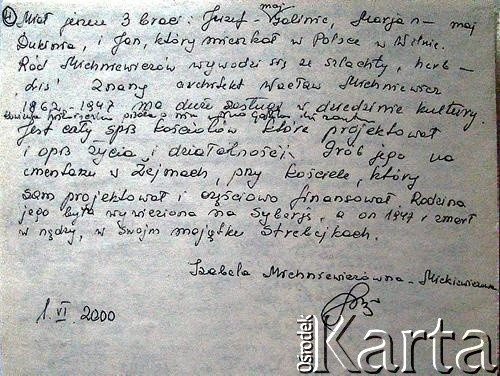 4 Miał jeszcze 3 braci: Józef - maj Golinie, Marjan - maj
Dukinia, i Jan, który mieszkał w Polsce w Wilnie.
Ród Michniewiczów wywodzi się ze szlachty, herb -
Lis! Znany architekt Wacław Michniewicz
1862 - 1947 ma duże zasługi w dziedzinie kultury.
pisała o nim
Jest cały spis kościołów które projektował
i opis życia i działalności. Grób jego na
cmentarzu w Żejmach, przy kościele, który
sam projektował i częściowo finansował. Rodzina
jego była wywieziona na Syberję, a on 1947 r zmarł
w nędzy, w swoim majątku Strebejkach.
Izabela Michniewiczówna - Mickiewiczowa
1. VI. 2000
Ośrodek
Karta